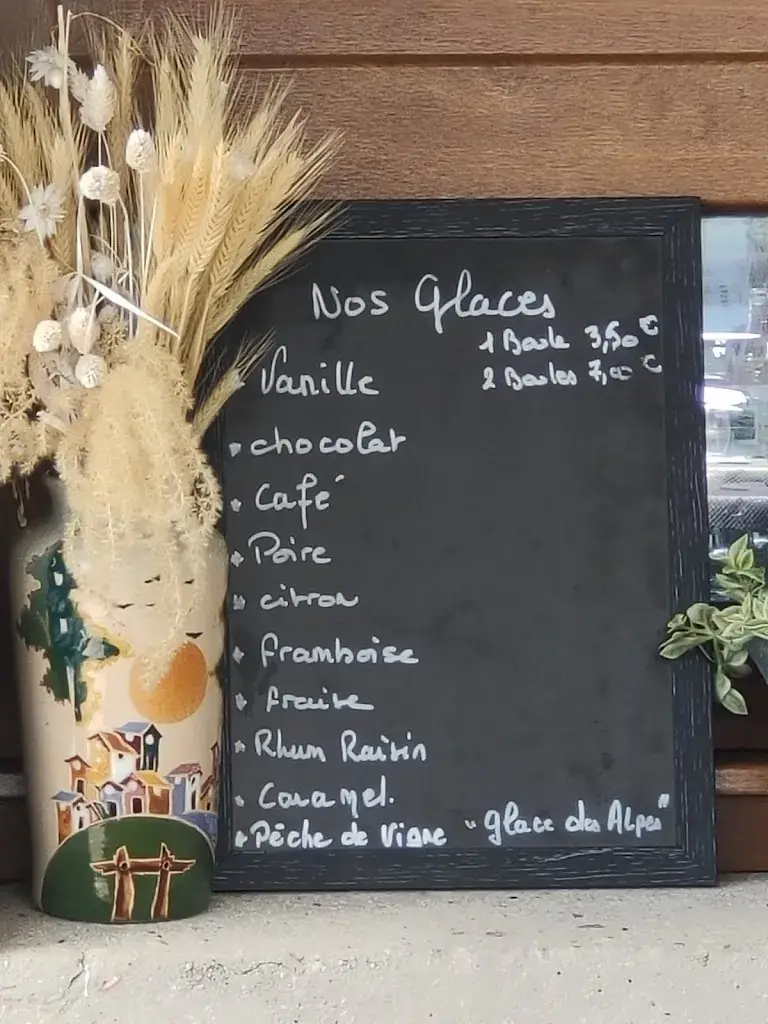 Nos Glaces
1 Boule 3,50€
2 Boules 7,00€
Vanille
chocolat
Café
Poire
citron
framboise
fraise
Rhum Raisin
Caramel.
Pêche de Vigne "glace des Alpes"